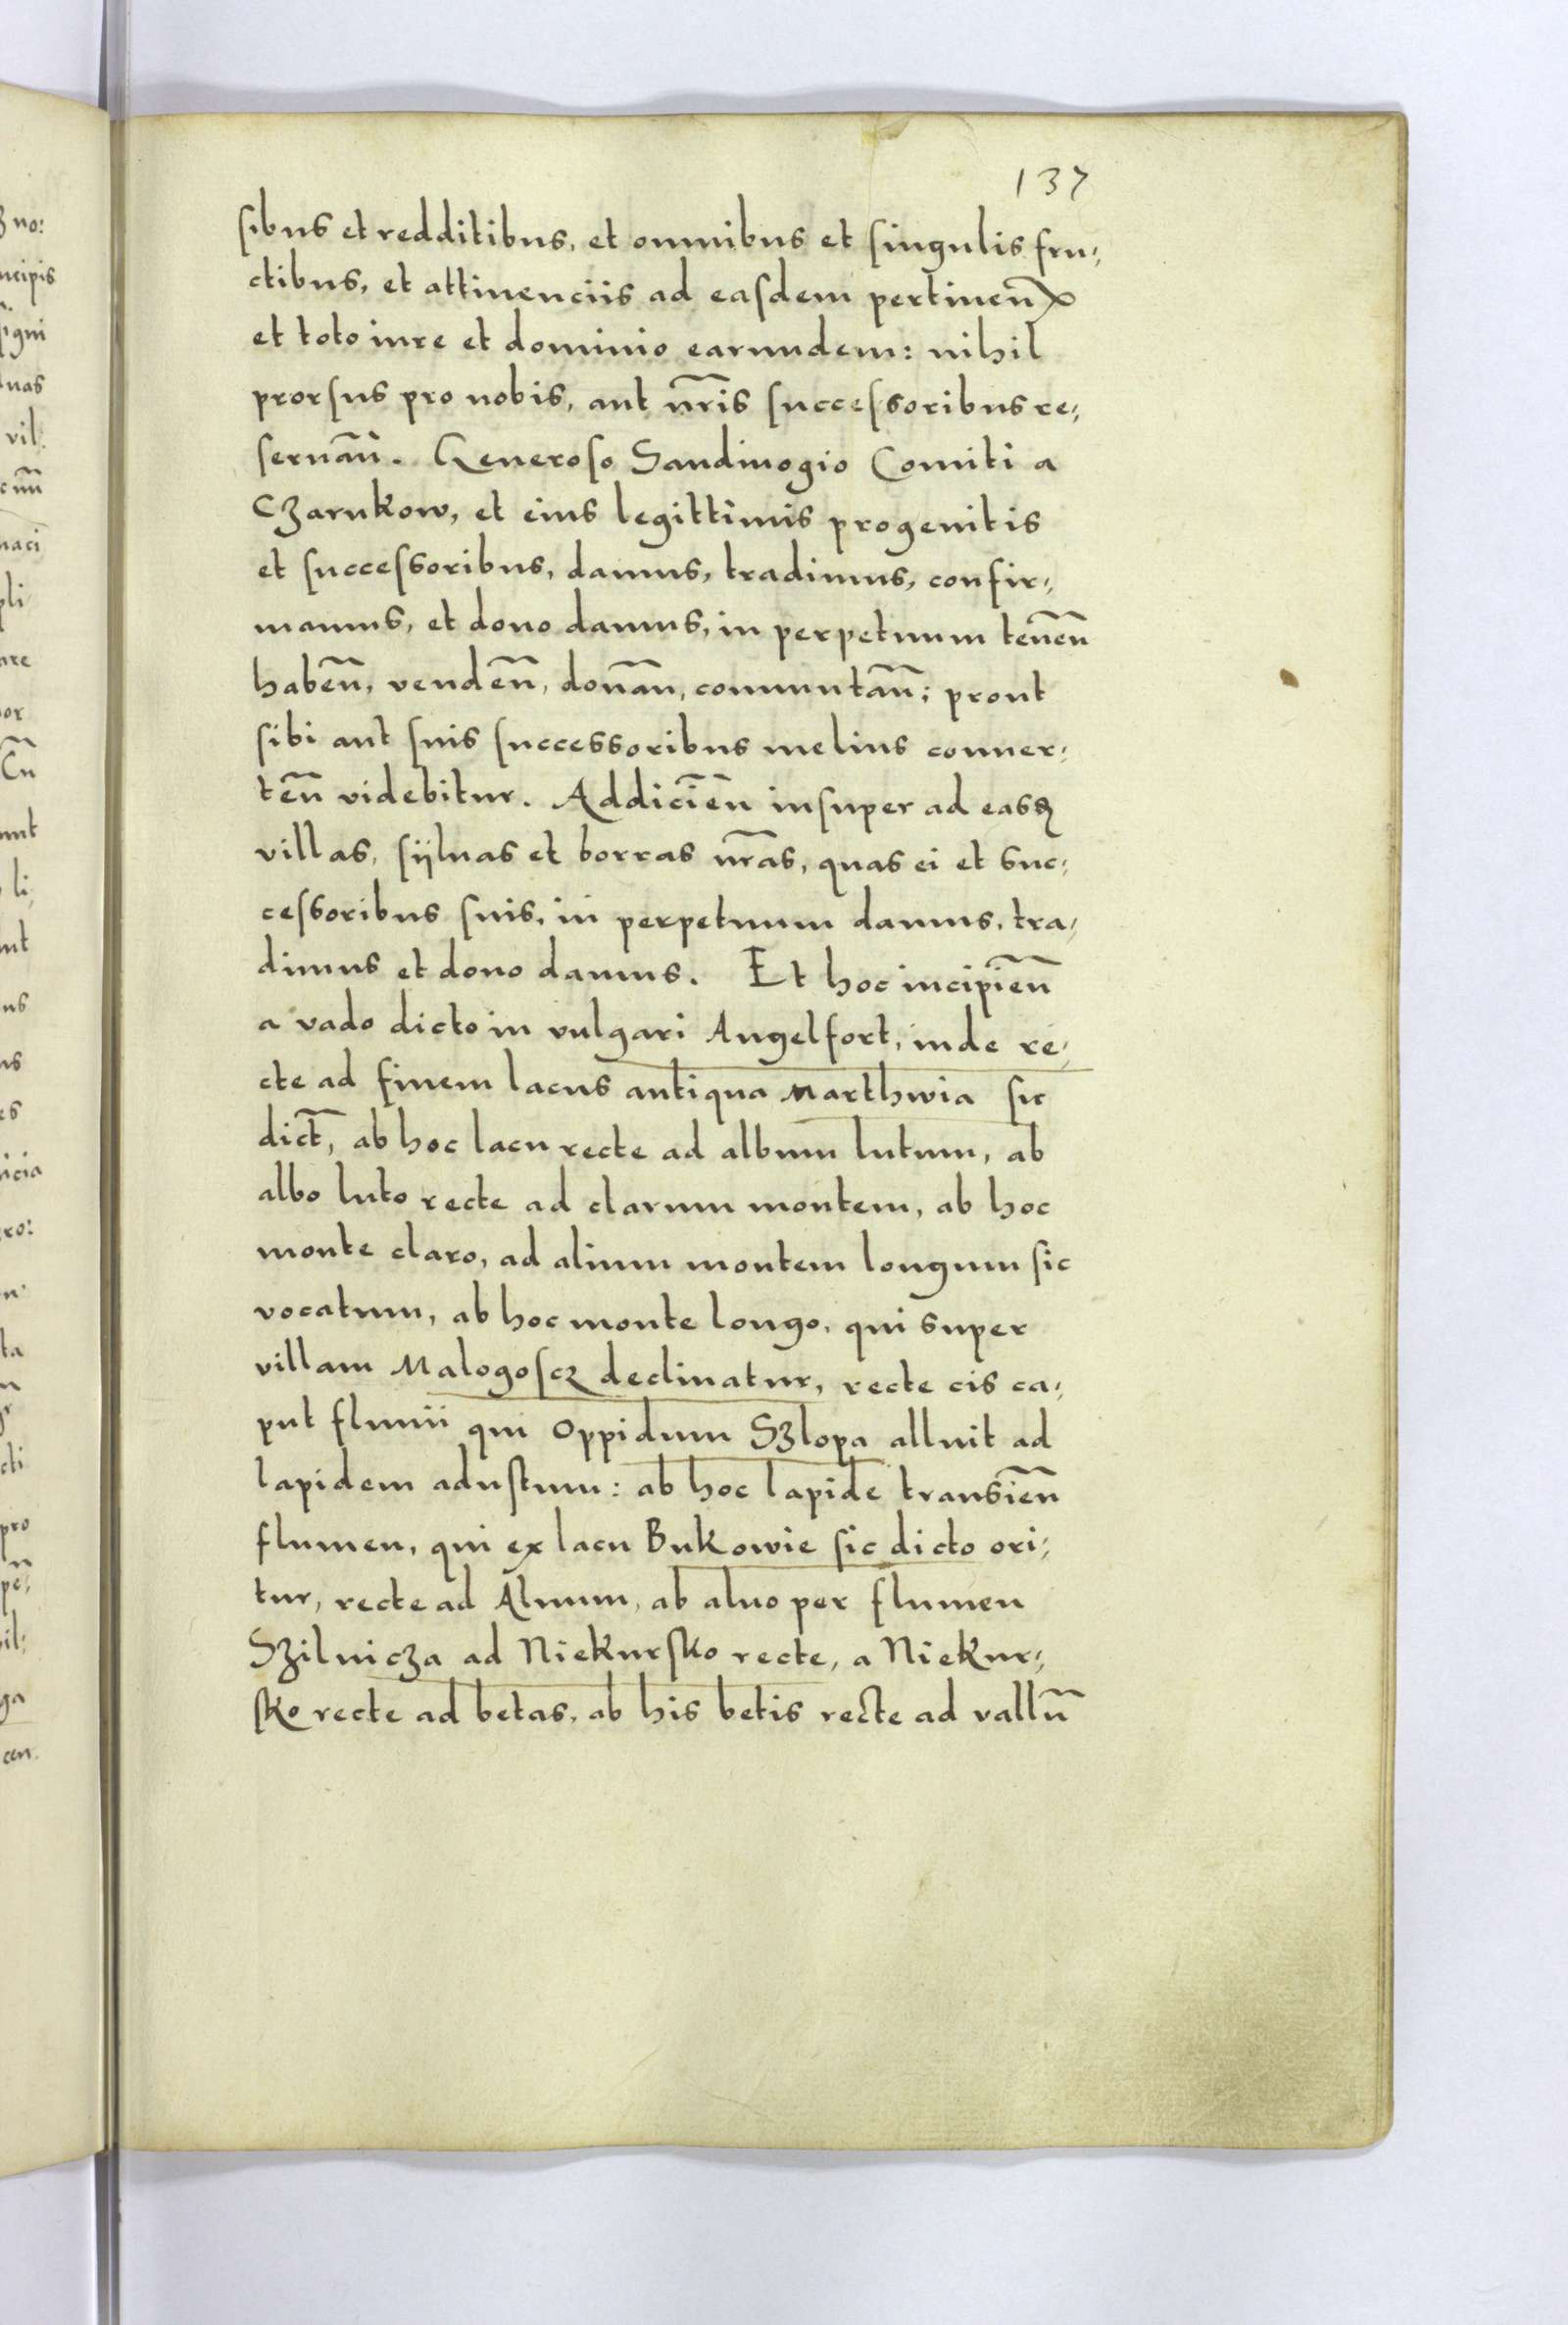 137
sibus et redditibus, et omnibus et singulis fru,
ctibus, et attinenciis ad easdem pertineñ
et toto iure et dominio earundem: nihil
prorsus pro nobis, aut nr̃is successoribus re,
seruañ. Generoso Sandiuogio Comiti a
Czarnkow, et eius legittimis progenitis
et successoribus, damus, tradimus, confir,
mamus, et dono damus, in perpetuum teneñ
habeñ, vendeñ, donañ, commutañ; prout
sibi aut suis successoribus melius conuer,
teñ videbitur. Addicieñ insuper ad easq
villas, syluas et borras nr̃as, quas ei et suc,
cessoribus suis, in perpetuum damus, tra,
dimus et dono damus. Et hoc incipieñ
a vado dicto in vulgari Angelfort, inde re,
cte ad finem lacus antiqua Marthwia sic
dict̃, ab hoc lacu recte ad album lutum, ab
albo luto recte ad clarum montem, ab hoc
monte claro, ad alium montem longum sic
vocatum, ab hoc monte longo, qui super
villam Malogoscz declinatur, recte cis ca,
put fluuii qui oppidum Szlopa alluit ad
lapidem adustum: ab hoc lapide transieñ
flumen, qui ex lacu Bukowie sic dicto ori,
tur, recte ad Alnum, ab alno per flumen
Szilnicza ad Niekursko recte, a Niekur,
sko recte ad betas, ab his betis recte ad vallũ